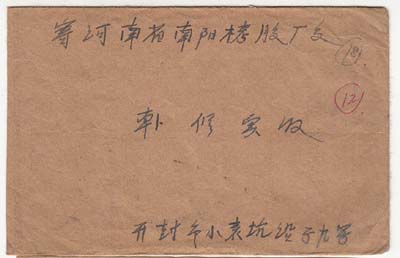 寄河南省南阳橡胶厂交
(18)
(12)
韩修実收
开封市小袁坑沿子九号